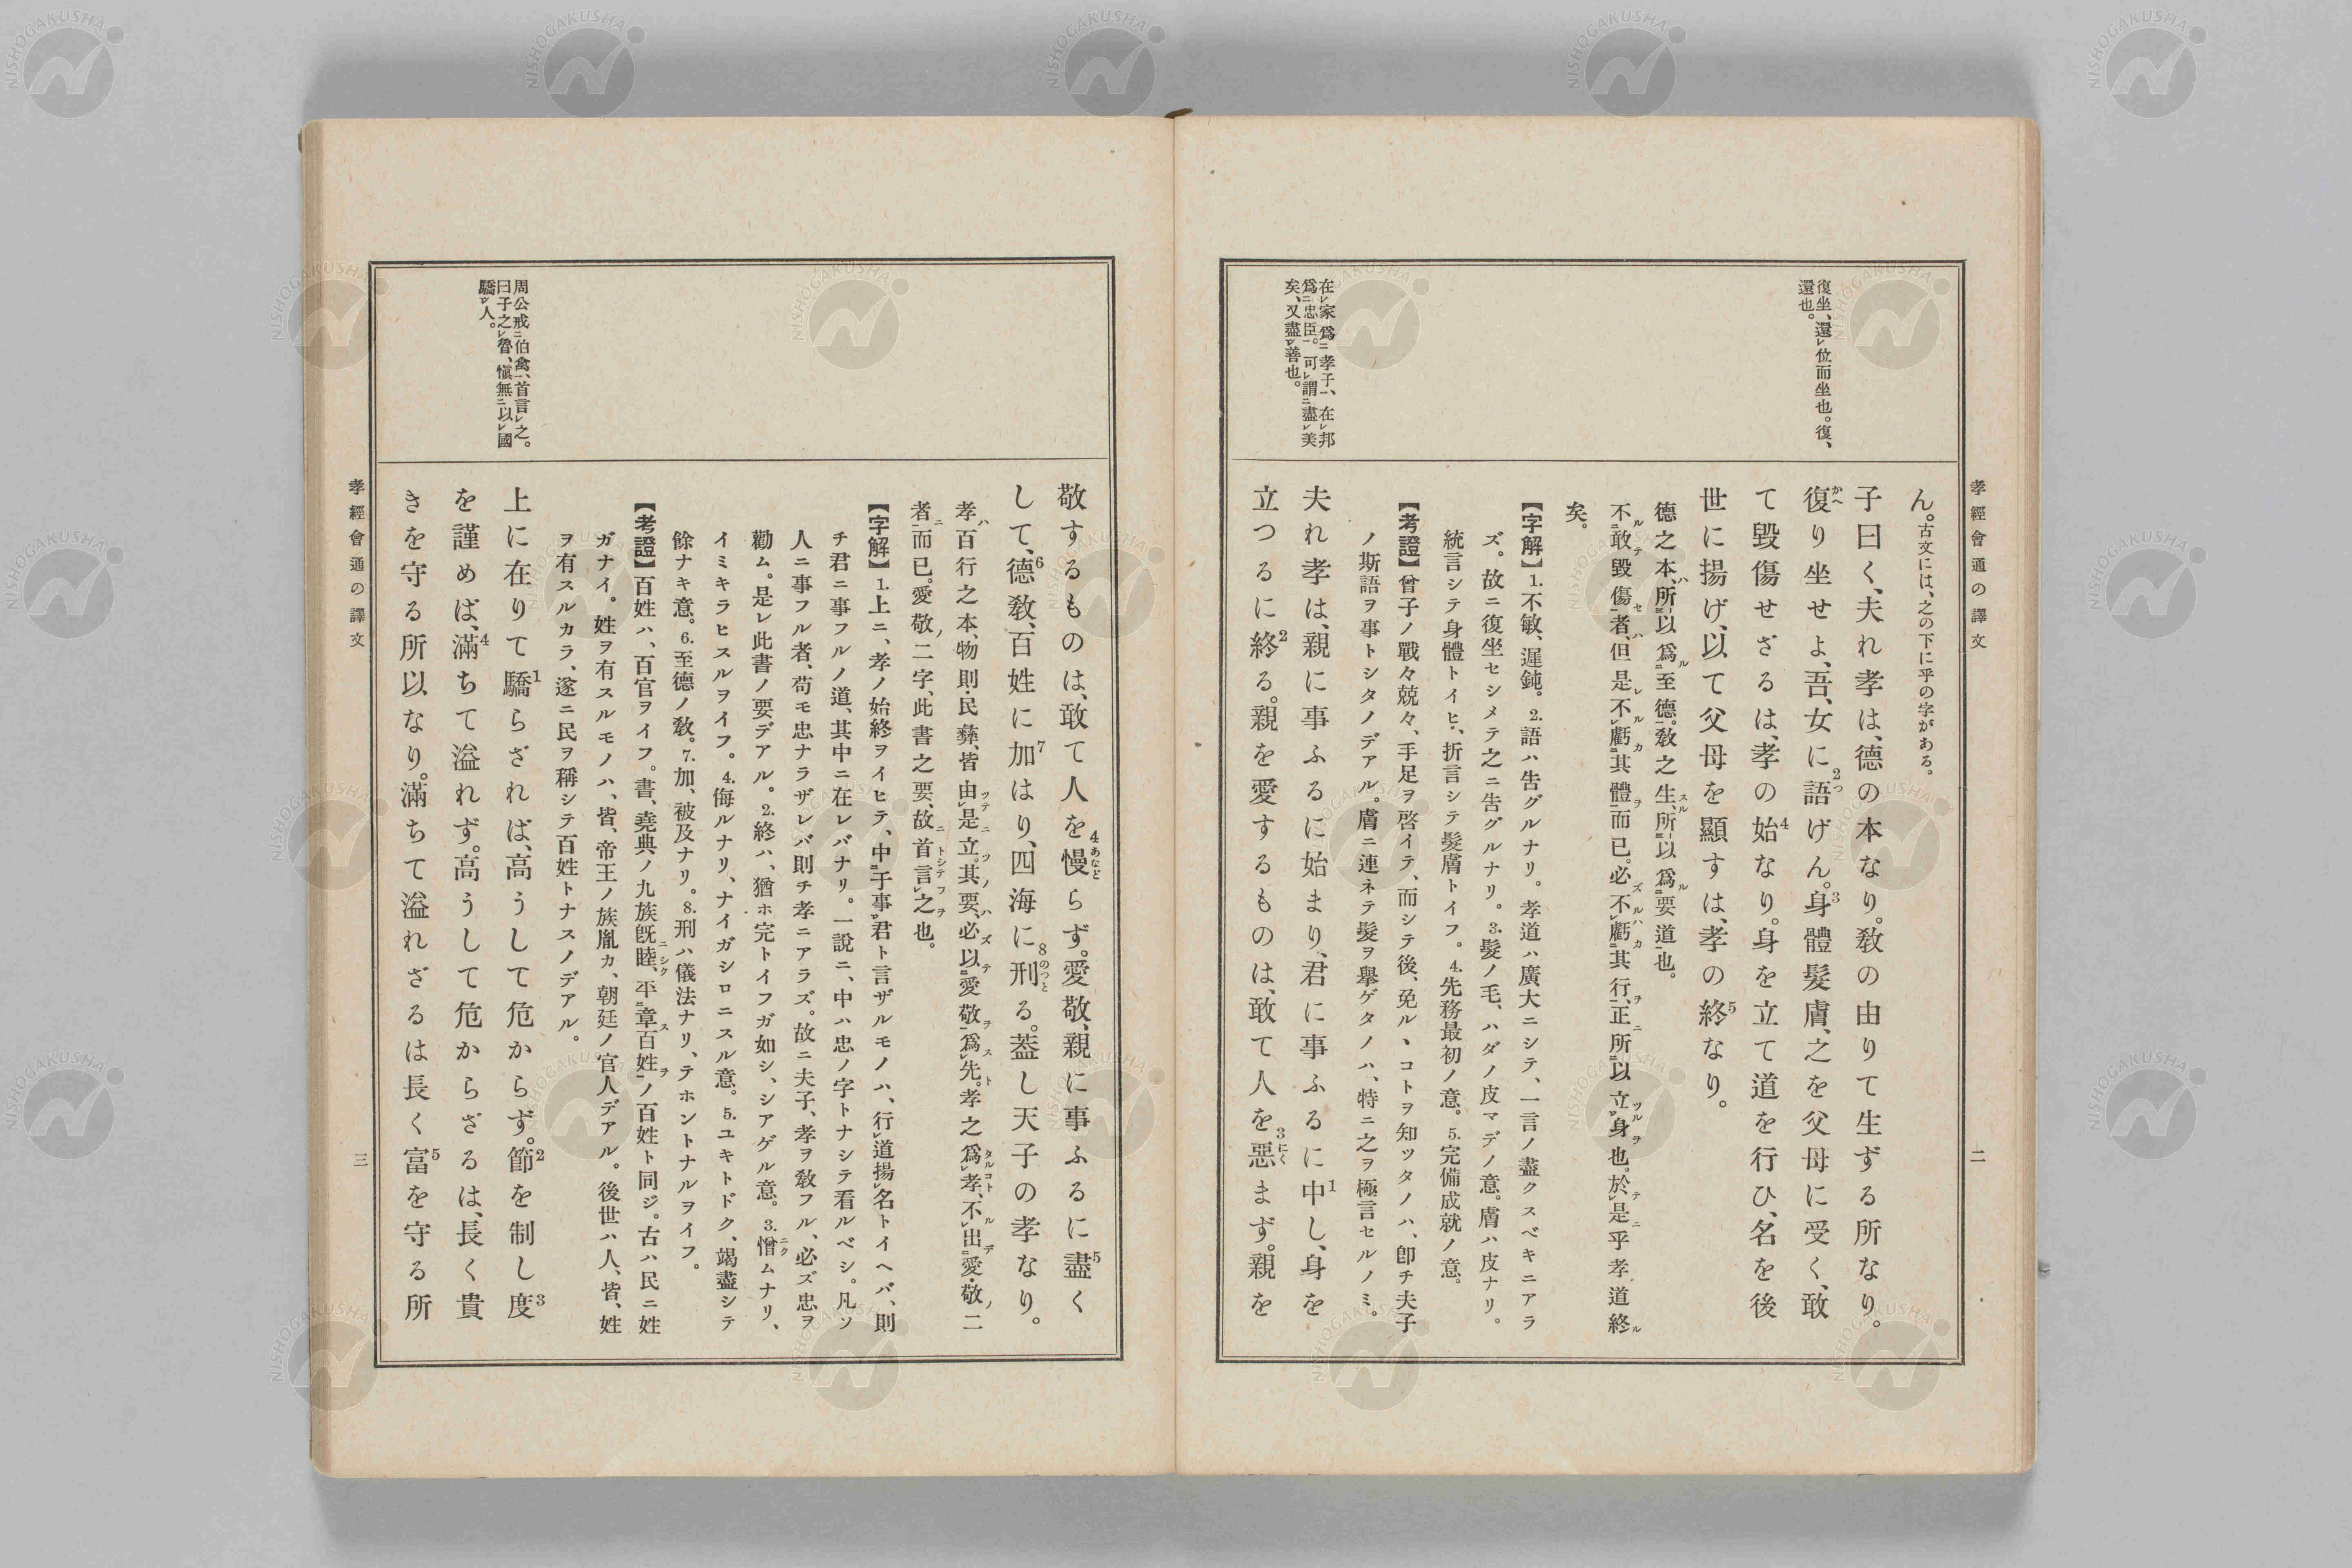 孝經會通の譯文
二
復坐、還レ位而坐也。復、
還也。
在レ家爲二孝子一、在レ邦
爲二忠臣一。可レ謂二盡レ美
矣、又盡レ善也。
ん。古文には、之の下に乎の字がある。
子曰く、夫れ孝は、德の本なり。敎の由りて生ずる所なり。
復り坐せよ、吾、女に語げん。身體髮膚、之を父母に受く、敢
て毀傷せざるは、孝の始なり。身を立て道を行ひ、名を後
世に揚げ、以て父母を顯すは、孝の終なり。
德之本、所三以爲二至德一。敎之生、所三以爲二要道一也。
不二敢毀傷一者、但是不レ虧二其體一而已。必不レ虧二其行一、正所二以立一レ身也。於レ是乎孝道終
矣。
【字解】1.不敏、遲鈍。2.語ハ吿グルナリ。孝道ハ廣大ニシテ、一言ノ盡クスベキニアラ
ズ。故ニ復坐セシメテ之ニ吿グルナリ。3.髮ノ毛、ハダノ皮マデノ意。膚ハ皮ナリ。
統言シテ身體トイヒ、折言シテ髮膚トイフ。4.先務最初ノ意。5.完備成就ノ意。
【考證】曾子ノ戰々兢々、手足ヲ啓イテ、而シテ後、免ル丶コトヲ知ッタノハ、卽チ夫子
ノ斯語ヲ事トシタノデアル。膚ニ連ネテ髮ヲ擧ゲタノハ、特ニ之ヲ極言セルノミ。
夫れ孝は、親に事ふるに始まり、君に事ふるに中し、身を
立つるに終る。親を愛するものは、敢て人を惡まず。親を
敬するものは、敢て人を慢らず。愛敬、親に事ふるに盡く
して、德敎、百姓に加はり、四海に刑る。蓋し天子の孝なり。
孝ハ百行之本、物則・民彝、皆由レ是立。其要、必以二愛敬一爲レ先。孝之爲レ孝、不レ出二愛・敬ノ二
者一而已。愛敬ノ二字、此書之要、故首言レ之也。
【字解】1.上ニ、孝ノ始終ヲイヒテ、中二于事一レ君ト言ザルモノハ、行レ道揚レ名トイヘバ、則
チ君ニ事フルノ道、其中ニ在レバナリ。一說ニ、中ハ忠ノ字トナシテ看ルベシ。凡ソ
人ニ事フル者、苟モ忠ナラザレバ則チ孝ニアラズ。故ニ夫子、孝ヲ敎フル、必ズ忠ヲ
勸ム。是レ此書ノ要デアル。2.終ハ、猶ホ完トイフガ如シ、シアゲル意。3.憎ムナリ、
イミキラヒスルヲイフ。4.侮ルナリ、ナイガシロニスル意。5.ユキトドク、竭盡シテ
餘ナキ意。6.至德ノ敎。7.加、被及ナリ。8.刑ハ儀法ナリ、テホントナルヲイフ。
【考證】百姓ハ、百官ヲイフ。書、堯典ノ九族旣睦、平二章百姓一ノ百姓ト同ジ。古ハ民ニ姓
ガナイ。姓ヲ有スルモノハ、皆、帝王ノ族胤カ、朝廷ノ官人デアル。後世ハ人、皆、姓
ヲ有スルカラ、遂ニ民ヲ稱シテ百姓トナスノデアル。
上に在りて驕らざれば、高うして危からず。節を制し度
を謹めば、滿ちて溢れず。高うして危からざるは、長く貴
きを守る所以なり。滿ちて溢れざるは長く富を守る所
周公戒二伯禽一、首言レ之。
曰子之レ魯、愼無二以レ國
驕一レ人。
孝經會通の譯文
三
NISHOGAKUSHA